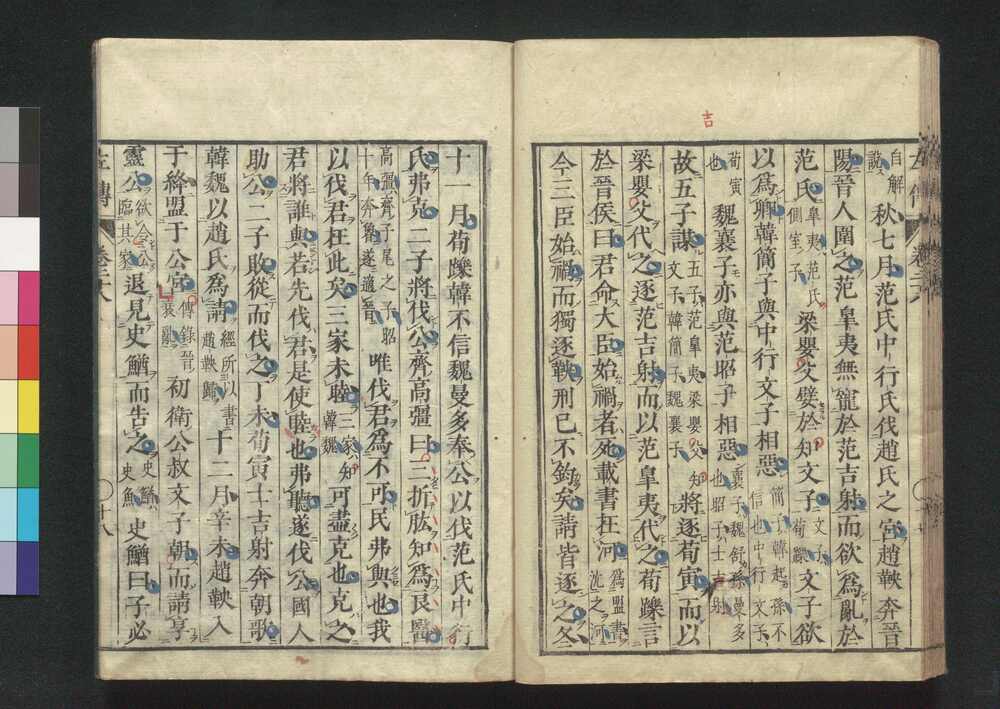 吉
自解説秋七月范氏中行氏伐趙氏之宮趙鞅奔晉
陽晉人圍之范皐夷無寵於范吉射而欲爲亂於
范氏皐夷范氏側室子梁嬰父嬖於知文子文子荀躒文子欲
以爲卿韓簡子與中行文子相惡簡子韓起孫不信也中行文子
荀寅也魏襄子亦與范昭子相惡襄子魏舒孫曼多也昭子士吉射
故五子謀五子范皐夷梁嬰父知文子韓簡子魏襄子將逐荀寅而以
梁嬰父代之逐范吉射而以范皐夷代之荀躒言
於晉侯曰君命大臣始禍者死載書在河爲盟書沈之河
今三臣始禍而獨逐鞅刑已不鈞矣請皆逐之冬
十一月荀躒韓不信魏曼多奉公以伐范氏中行
氏弗克二子將伐公齊高彊曰三折肱知爲良醫
高彊齊子尾之子昭十年奔魯遂適晉唯伐君爲不可民弗與也我
以伐君在此矣三家未睦三家知韓魏可盡克也克之
君將誰與若先伐君是使睦也弗聽遂伐公國人
助公二子敗從而伐之丁未荀寅士吉射奔朝歌
韓魏以趙氏爲請經所以書趙鞅歸十二月辛未趙鞅入
于絳盟于公宮傳錄晉衰亂初衞公叔文子朝而請享
靈公欲令公臨其家退見史鰌而告之史鰌史魚史鰌曰子必
左傳 卷二十八 十八